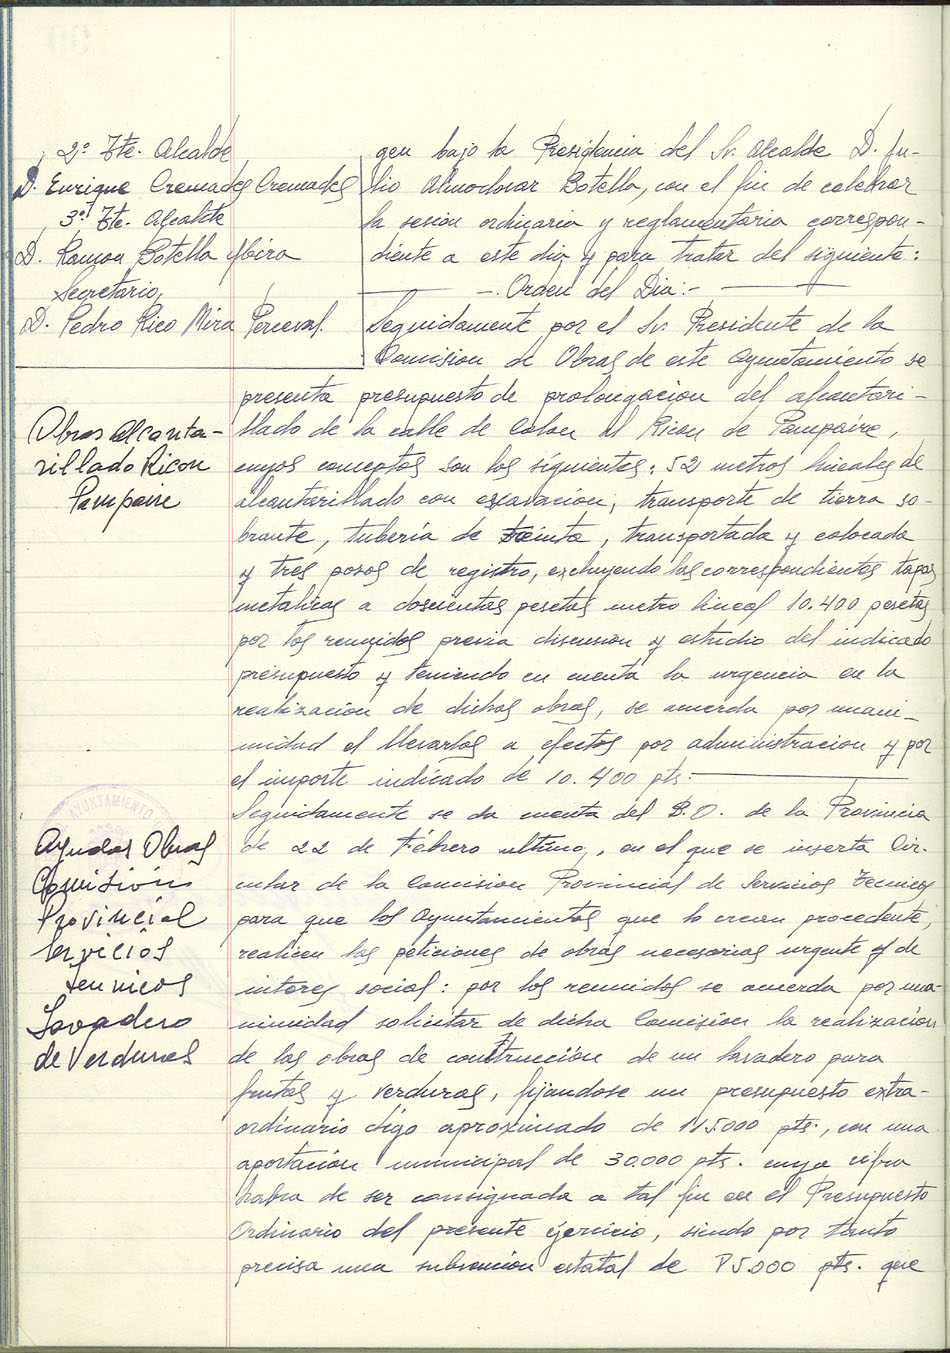 2º Tte. Alcalde
D. Enrique Cremades Cremades
3º Tte. Alcalde
D. Ramon Botella Mira
Secretario,
D. Pedro Rico Mira Perceval.
gen bajo la Presidencia del Sr. Alcalde D. Ju-
lio Almodovar Botella, con el fin de celebrar
la sesion ordinaria y reglamentaria correspon-
diente a este dia y para tratar del siguiente:
-. Orden del Dia:-
Seguidamente por el Sr. Presidente de la
Comision de Obras de este Ayuntamiento se
Obras alcanta-
rillado Ricon
Pampaire
presenta presupuesto de prolongacion del alcantari-
llado de la calle de Colon al Ricon de Pampaire,
cuyos conceptos son los siguientes: 52 metros lineales de
alcantarillado con exavacion, transporte de tierra so-
brante, tubería de treinta, transportada y colocada
y tres pozos de registro, excluyendo las correspondientes tapas
metalicas a doscientas pesetas metro lineal 10.400 pesetas
por los reunidos previa discusion y estudio del indicado
presupuesto y teniendo en cuenta la urgencia en la
realizacion de dichas obras, se acuerda por unani-
midad el llevarlas a efectos por administracion y por
el importe indicado de 10.400 pts.-
AYUNTAMIENTO
Ayudas Obras
Comisión
Provincial
Servicios
Tecnicos
Lavadero
de Verduras
Seguidamente se da cuenta del B.O. de la Provincia
de 22 de Febrero ultimo, en el que se inserta Cir-
cular de la Comision Provincial de Servicios Tecnicos
para que los Ayuntamientos que lo crean procedente,
realicen las peticiones de obras necesarias urgente y de
interes social: por los reunidos se acuerda por una-
nimidad solicitar de dicha Comision la realización
de las obras de construcción de un lavadero para
frutas y verduras, fijandose un presupuesto extra-
ordinario digo aproximado de pts., con una
aportación municipal de 30.000 pts. cuya cifra
habra de ser consignada a tal fin en el Presupuesto
Ordinario del presente ejercicio, siendo por tanto
precisa una subvencion estatal de pts. que